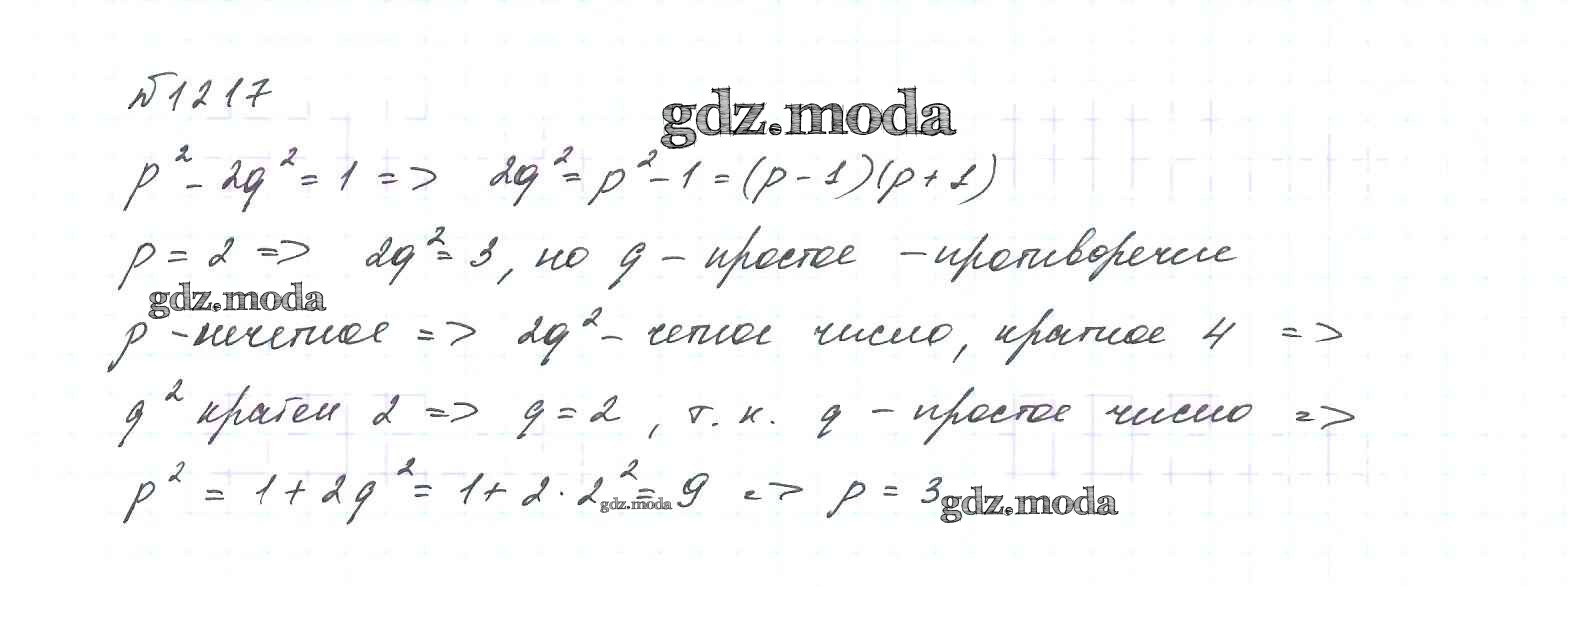 №1217
gdz.moda
p² - 2q² = 1 => 2q² = p² - 1 = (p - 1)(p + 1)
p = 2 => 2q² = 3, но q - простое - противоречие
gdz.moda
p - нечетное => 2q² - четное число, кратное 4 =>
q² кратен 2 => q = 2, т. к. q - простое число =>
p² = 1 + 2q² = 1 + 2 · 2² = 9 => p = 3
gdz.moda
gdz.moda